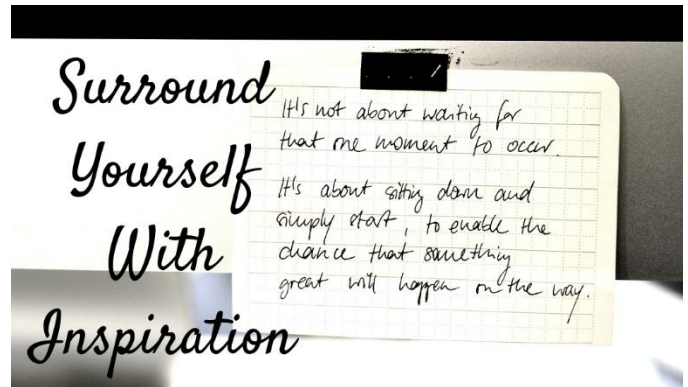 Surround
Yourself
With
Inspiration
It's not about waiting for
that one moment to occur.
It's about sitting down and
simply start, to enable the
chance that something
great will happen on the way.